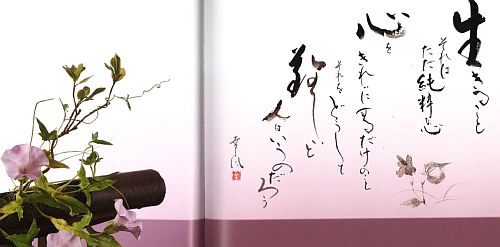 生きること
それは
ただ純粋に
心を
きれいにするだけのこと
それを
どうして
難しいと
人はいうのだろう